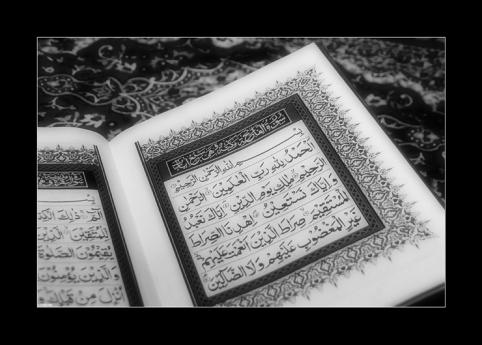 سُورَةُ الْفَاتِحَةِ
بِسْمِ اللَّهِ الرَّحْمَٰنِ الرَّحِيمِ
الْحَمْدُ لِلَّهِ رَبِّ الْعَالَمِينَ الرَّحْمَٰنِ
الرَّحِيمِ مَالِكِ يَوْمِ الدِّينِ إِيَّاكَ نَعْبُدُ
وَإِيَّاكَ نَسْتَعِينُ اهْدِنَا الصِّرَاطَ
الْمُسْتَقِيمَ صِرَاطَ الَّذِينَ أَنْعَمْتَ عَلَيْهِمْ
غَيْرِ الْمَغْضُوبِ عَلَيْهِمْ وَلَا الضَّالِّينَ
الم ذَٰلِكَ
لِلْمُتَّقِينَ الَّذِينَ
يُقِيمُونَ الصَّلَوٰةَ
وَالَّذِينَ يُؤْمِنُونَ
أُنْزِلَ مِنْ قَبْلِكَ